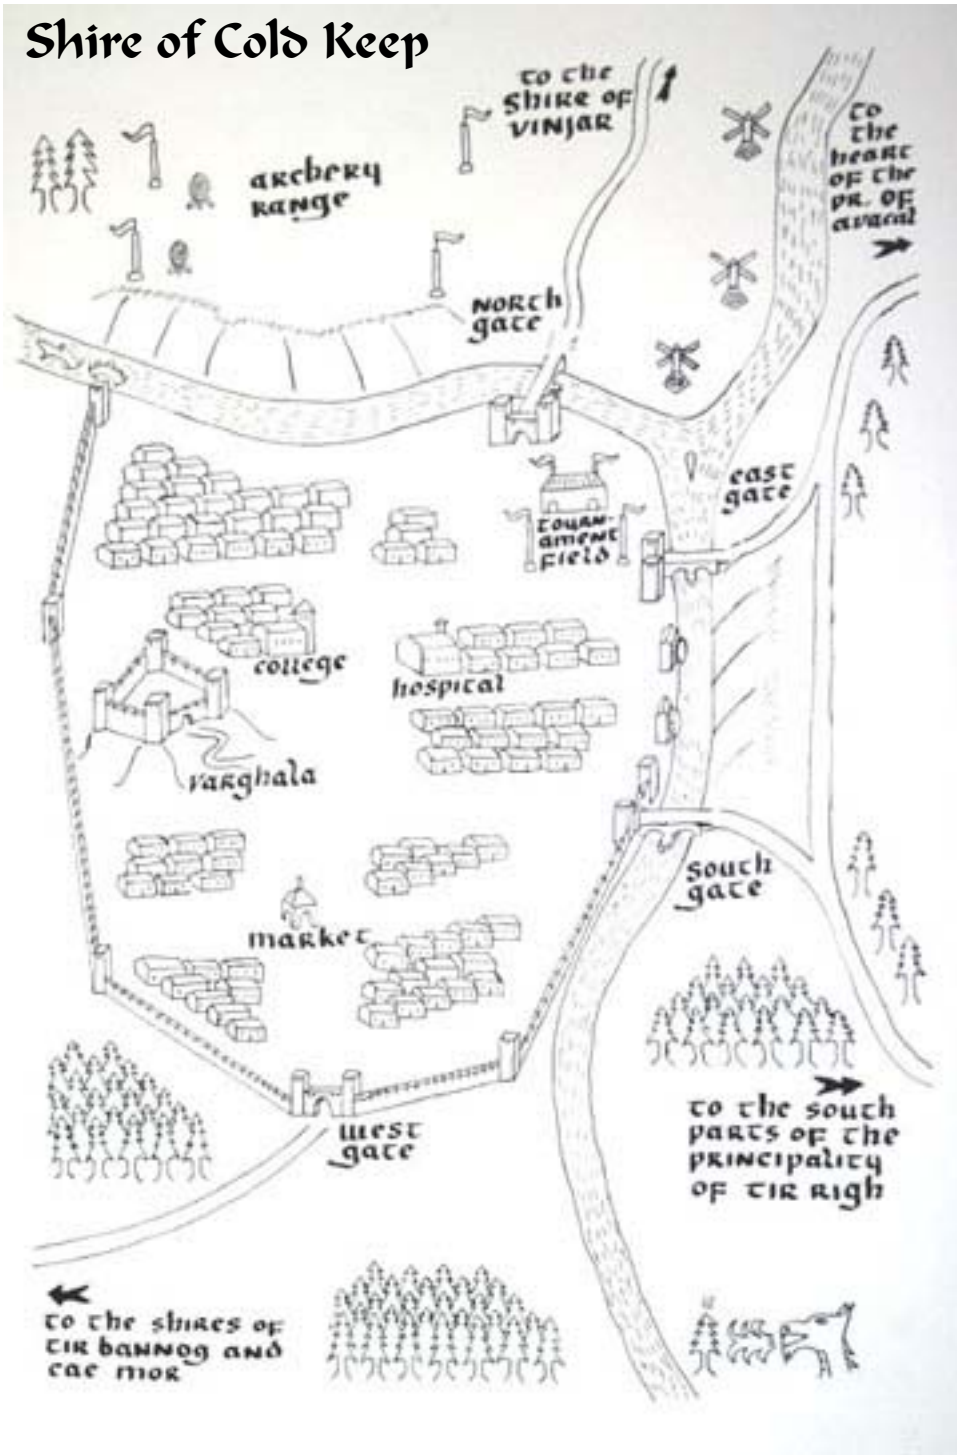 Shire of Cold Keep
to the
Shire of
Vinjar
to
the
heart
of the
pr. of
avacal
archery
range
north
gate
east
gate
tourn-
ament
field
college
hospital
varghala
south
gate
market
to the south
parts of the
principality
of tir righ
west
gate
to the shires of
tir bannog and
cae mor